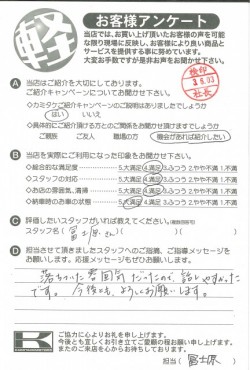 軽 お客様アンケート
当店では、お買い上げ頂いたお客様の声を可能
な限り現場に反映し、お客様により良い商品と
サービスを提供する事に努めています。
大変お手数ですが是非お声をお聞かせ下さい。
検印
3.8.03
社長
A 当店はご紹介を大切にしております。
ご紹介キャンペーンについてお聞かせ下さい。
◇カミタケご紹介キャンペーンのご説明はありましたでしょうか
はい いいえ
◇具体的にご紹介頂ける方とのご関係をお聞かせ頂けますでしょうか
ご親族 ご友人 職場の方 機会があれば紹介したい
B 当店を実際にご利用になった印象をお聞かせ下さい。
◇総合的な満足度 5.大満足 4.満足 3.ふつう 2.やや不満 1.不満
◇スタッフの対応 5.大満足 4.満足 3.ふつう 2.やや不満 1.不満
◇お店の雰囲気、清掃 5.大満足 4.満足 3.ふつう 2.やや不満 1.不満
◇納車時のお車の状態 5.大満足 4.満足 3.ふつう 2.やや不満 1.不満
C 評価したいスタッフがいれば教えてください。(複数回答可)
スタッフ名( 冨士原さん )( )
D 担当させて頂きましたスタッフへのご指摘、ご指導メッセージを
お願いします。応援メッセージもぜひお願いします。
落ちついた雰囲気だったので、話しやすかった
です。今後とも、よろしくお願いします。
K
ご協力に心よりお礼を申し上げます。
今後とも宜しくお引き立てご愛顧の程お願い申し上げます。
またのご来店を心からお待ちしております。
担当( 冨士原 )